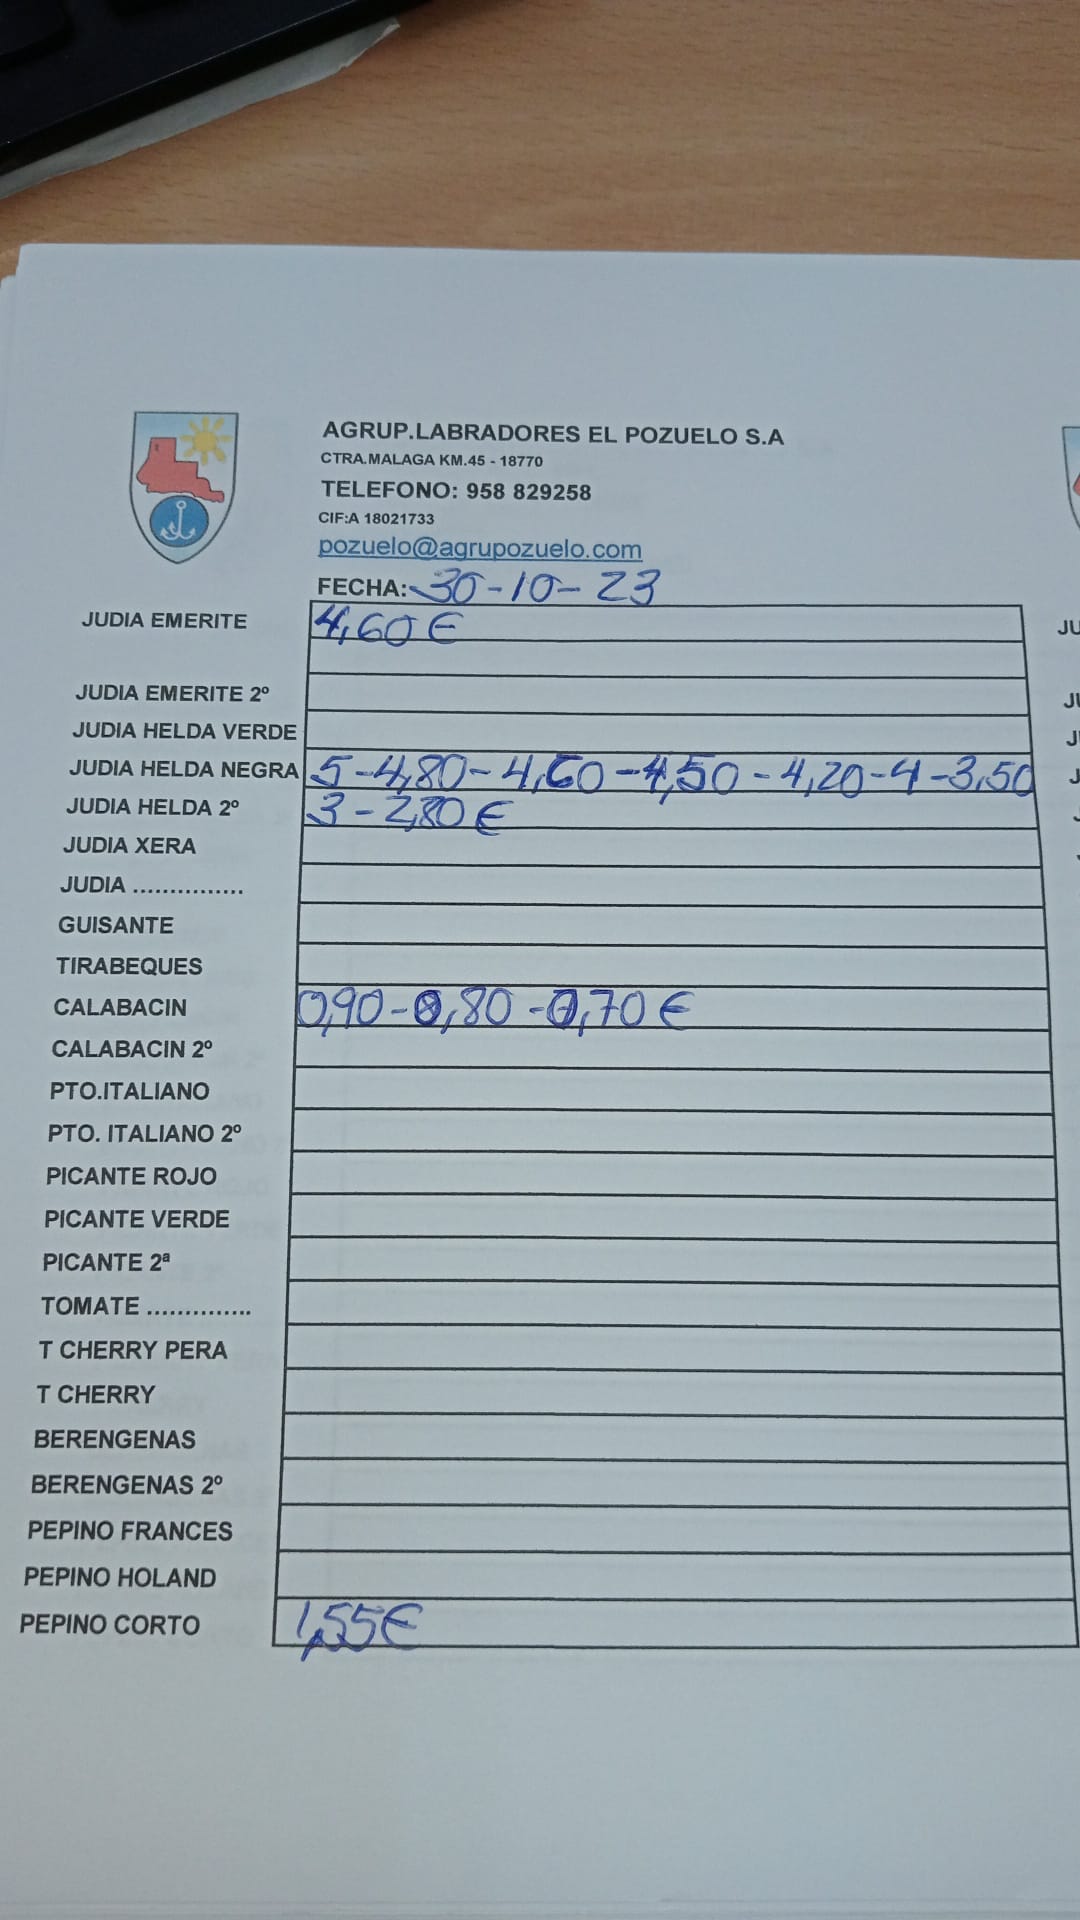 AGRUP.LABRADORES EL POZUELO S.A
CTRA.MALAGA KM.45 - 18770
TELEFONO: 958 829258
CIF:A 18021733
pozuelo@agrupozuelo.com
FECHA: 30-10-23
JUDIA EMERITE 4,60 €
JUDIA EMERITE 2º
JUDIA HELDA VERDE
JUDIA HELDA NEGRA 5-4,80-4,60-4,50-4,20-4-3,50
JUDIA HELDA 2º 3-2,80 €
JUDIA XERA
JUDIA ...............
GUISANTE
TIRABEQUES
CALABACIN 0,90-0,80-0,70 €
CALABACIN 2º
PTO.ITALIANO
PTO. ITALIANO 2º
PICANTE ROJO
PICANTE VERDE
PICANTE 2ª
TOMATE ..............
T CHERRY PERA
T CHERRY
BERENGENAS
BERENGENAS 2º
PEPINO FRANCES
PEPINO HOLAND
PEPINO CORTO 1,55€